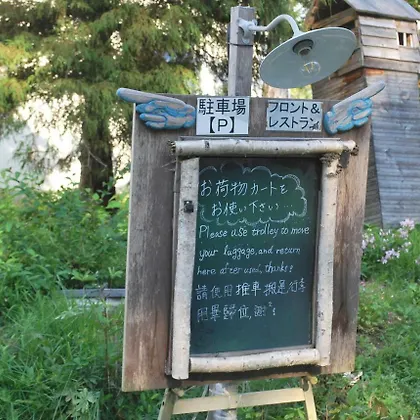 駐車場
【P】
フロント&
レストラン
お荷物カートを
お使い下さい…
Please use trolley to move
your luggage, and return
here after used, thanks!
請使用推車搬運行李
用畢歸位，謝謝!